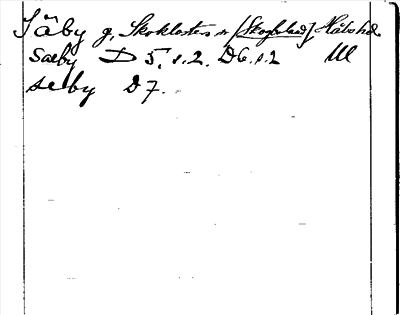 Säby g, Skoklosters sn [Skogbland] Håbo hd.
Saeby D 5. s. 2. D6. s. 2 Ul
selby D 7.